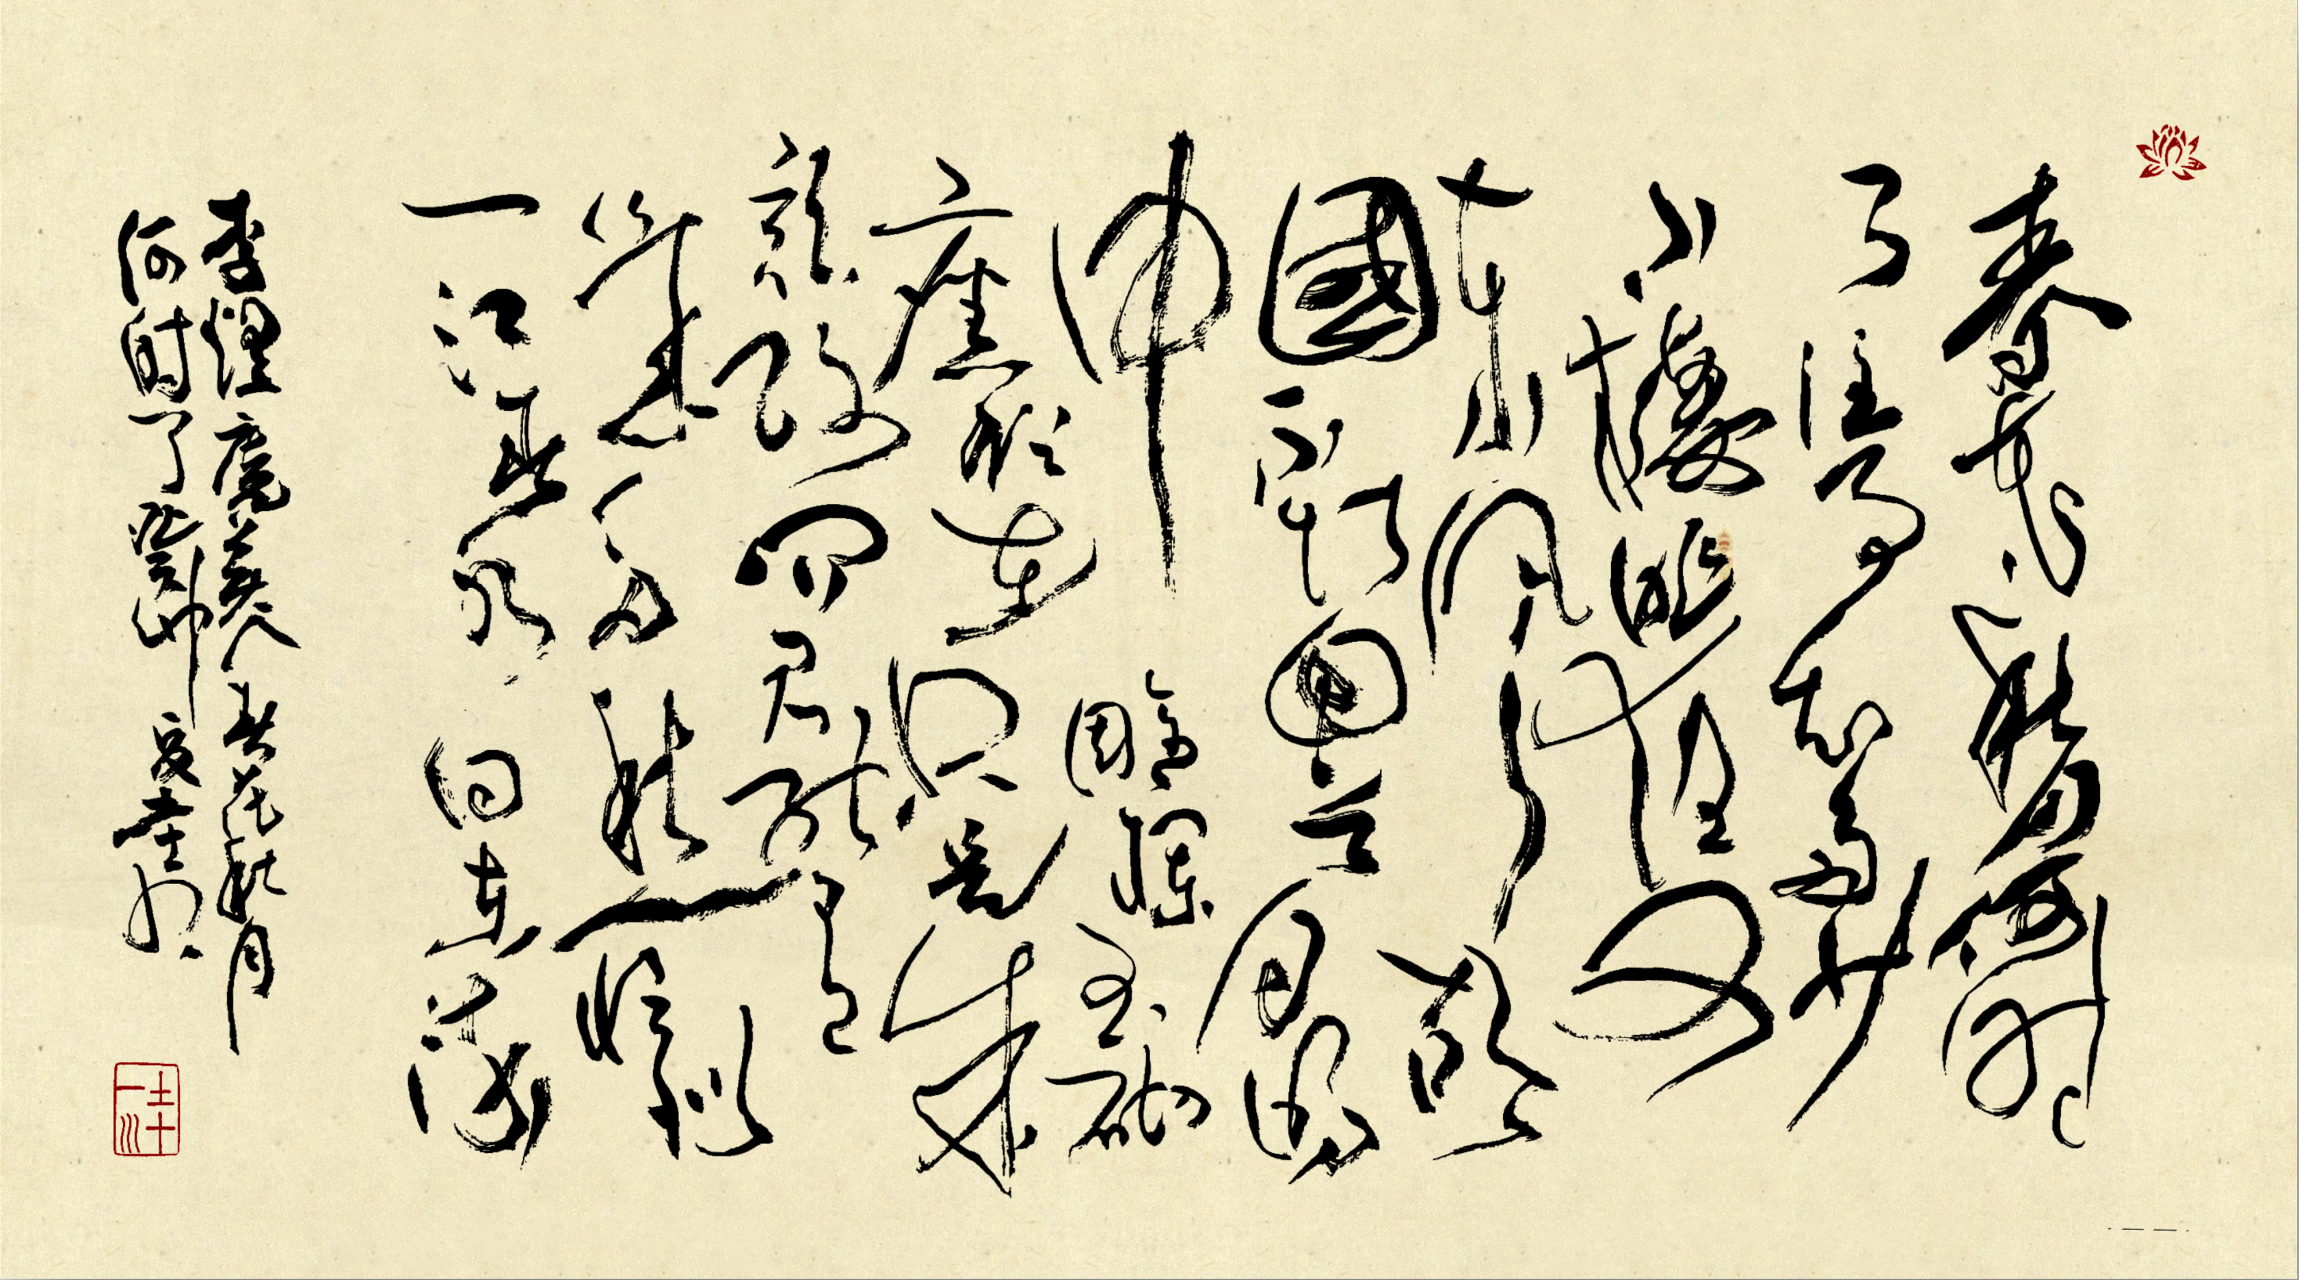 春花秋月何時
了往事知多少
小樓昨夜又
東風故
國不堪回首月明
中雕欄玉砌
應猶在只是朱
顏改問君能有
幾多愁恰似
一江春水向東流
李煜虞美人春花秋月
何時了癸卯